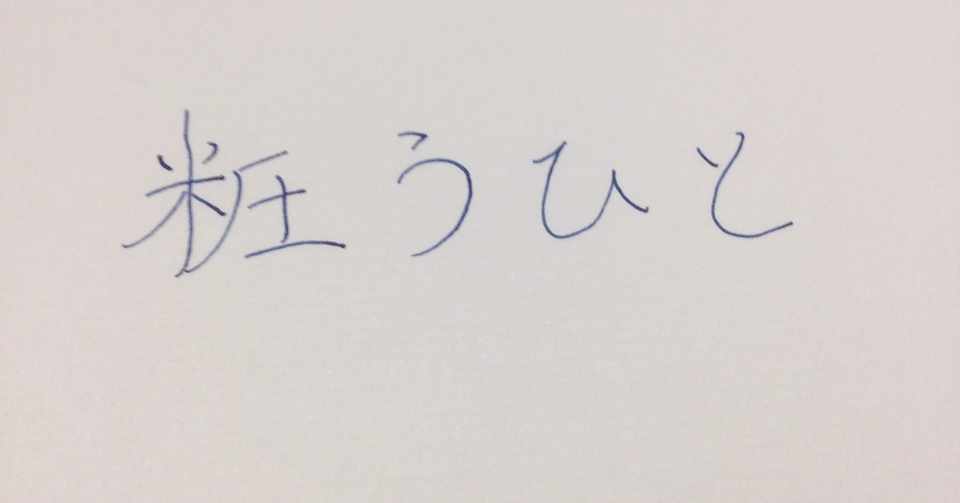 粧うひと